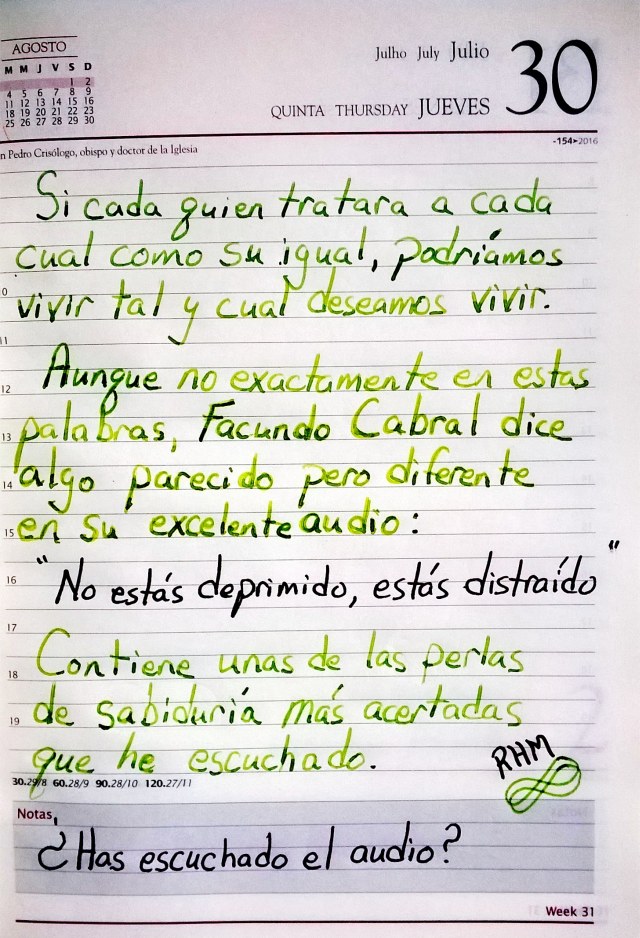 AGOSTO
M M J V S D
1 2
4 5 6 7 8 9
11 12 13 14 15 16
18 19 20 21 22 23
25 26 27 28 29 30
Julho July Julio
30
QUINTA THURSDAY JUEVES
-154▸2016
n Pedro Crisólogo, obispo y doctor de la Iglesia
Si cada quien tratara a cada
cual como su igual, podríamos
vivir tal y cual deseamos vivir.
Aunque no exactamente en estas
palabras, Facundo Cabral dice
algo parecido pero diferente
en su excelente audio:
"No estás deprimido, estás distraído"
Contiene unas de las perlas
de sabiduría más acertadas
que he escuchado.
RHM
0
11
12
13
14
15
16
17
18
19
30.29/8 60.28/9 90.28/10 120.27/11
Notas
¿Has escuchado el audio?
Week 31